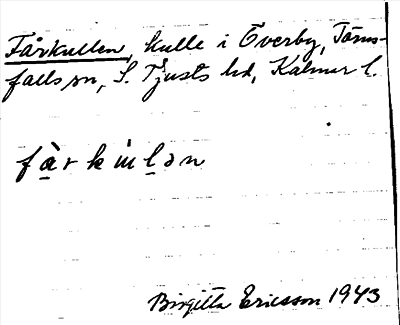 Fårkullen, kulle i Överby, Törns-
falls sn, S. Tjusts hd, Kalmar l.
fårkulən
Birgitta Ericsson 1943